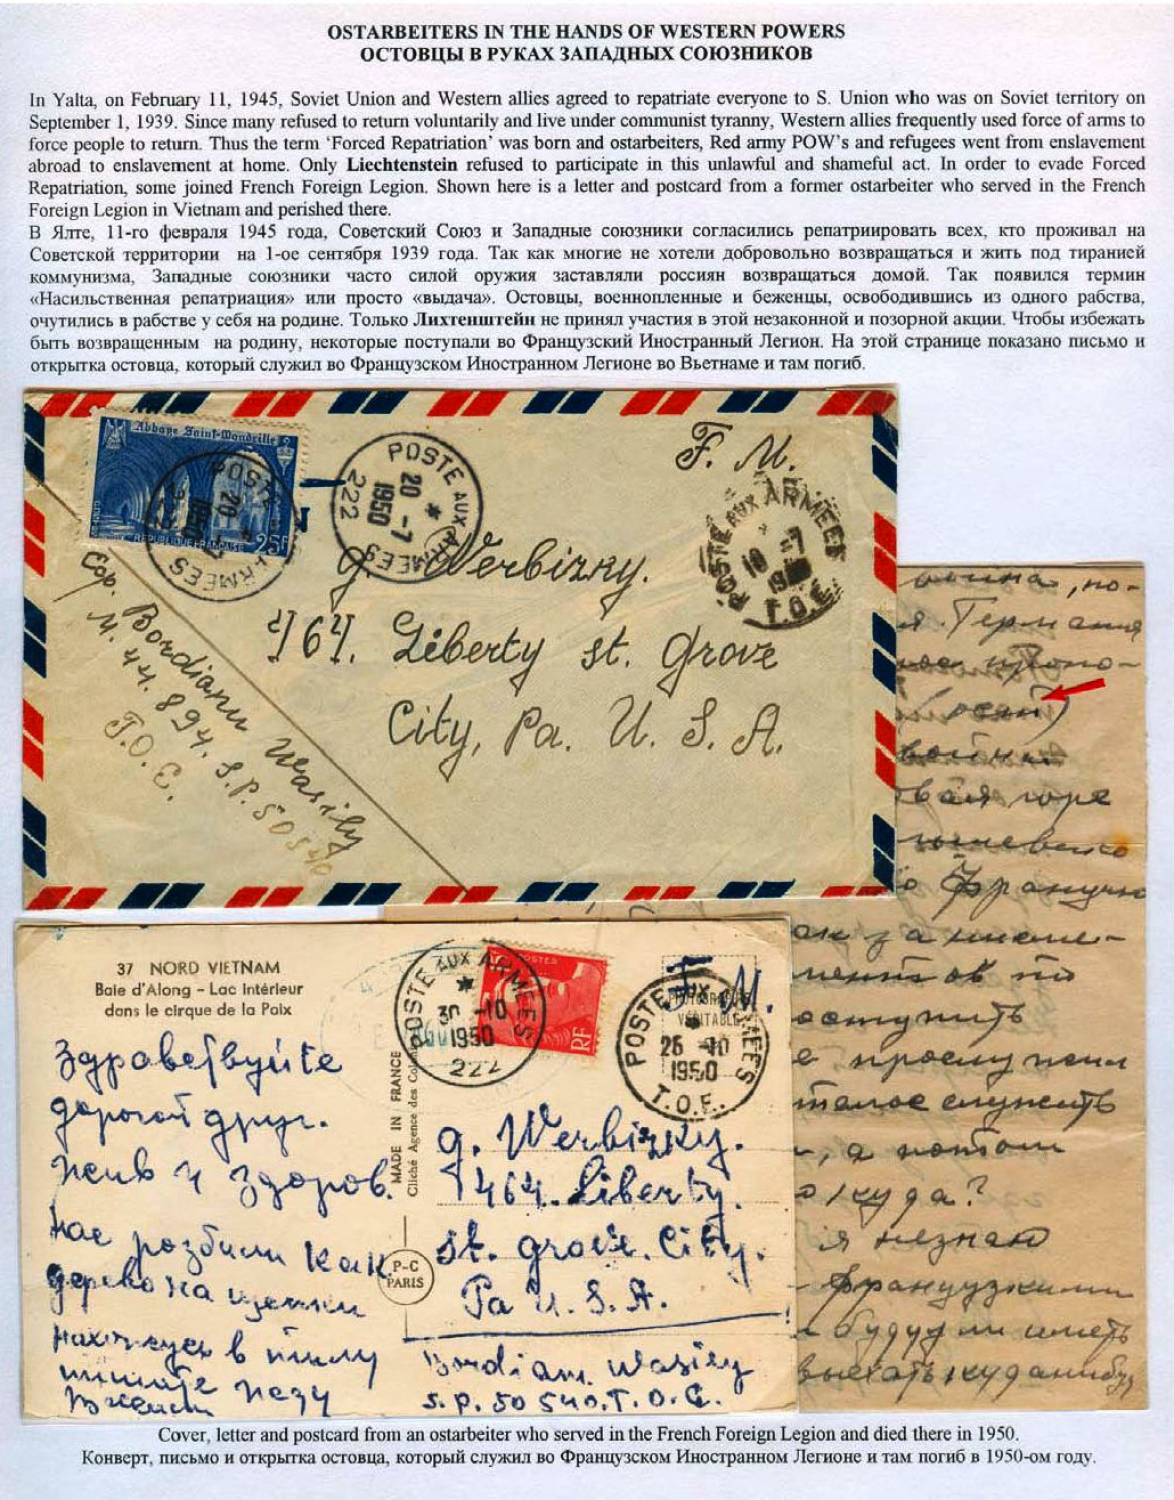 OSTARBEITERS IN THE HANDS OF WESTERN POWERS
ОСТОВЦЫ В РУКАХ ЗАПАДНЫХ СОЮЗНИКОВ
In Yalta, on February 11, 1945, Soviet Union and Western allies agreed to repatriate everyone to S. Union who was on Soviet territory on
September 1, 1939. Since many refused to return voluntarily and live under communist tyranny, Western allies frequently used force of arms to
force people to return. Thus the term ‘Forced Repatriation’ was born and ostarbeiters, Red army POW's and refugees went from enslavement
abroad to enslavement at home. Only Liechtenstein refused to participate in this unlawful and shameful act. In order to evade Forced
Repatriation, some joined French Foreign Legion. Shown here is a letter and postcard from a former ostarbeiter who served in the French
Foreign Legion in Vietnam and perished there.
В Ялте, 11-го февраля 1945 года, Советский Союз и Западные союзники согласились репатриировать всех, кто проживал на
Советской территории на 1-ое сентября 1939 года. Так как многие не хотели добровольно возвращаться и жить под тиранией
коммунизма, Западные союзники часто силой оружия заставляли россиян возвращаться домой. Так появился термин
«Насильственная репатриация» или просто «выдача». Остовцы, военнопленные и беженцы, освободившись из одного рабства,
очутились в рабстве у себя на родине. Только Лихтенштейн не принял участия в этой незаконной и позорной акции. Чтобы избежать
быть возвращенным на родину, некоторые поступали во Французский Иностранный Легион. На этой странице показано письмо и
открытка остовца, который служил во Французском Иностранном Легионе во Вьетнаме и там погиб.
Abbaye Saint-Wandrille
REPUBLIQUE FRANÇAISE 25F
POSTE AUX ARMEES
20 -7
1950
222
POSTE AUX ARMEES
20 -7
1950
222
F. M.
POSTE AUX ARMEES
T.O.E.
g. Werbizky.
464. Liberty st. Grove
City, Pa. U. S. A.
Bordianu Wasily
M. 44.894. S.P. 50540
T.O.E.
война, по-
я Германия
(осяй)
войны
горе
Французк
за
по
поступить
служить
, а потом
куда?
я незнаю
Французкими
будут ли иметь
выехать куданибудь
37 NORD VIETNAM
Baie d'Along - Lac Intérieur
dans le cirque de la Paix
Здравствуйте
дорогой друг.
жив и здоров.
нас розбили как
дерево на щепки
нахожусь в тылу
пишите
MADE IN FRANCE
POSTE AUX ARMEES
30 -10
1950
222
POSTES
RF
F. M.
PHOTOGRAPHIE
VÉRITABLE
POSTE AUX ARMEES
26 -10
1950
T.O.E.
P-C
PARIS
g. Werbizky.
464. Liberty.
st. grove. City.
Pa U. S. A.
Bordianu Wasiley
S.P. 50 540. T. O. E.
Cover, letter and postcard from an ostarbeiter who served in the French Foreign Legion and died there in 1950.
Конверт, письмо и открытка остовца, который служил во Французском Иностранном Легионе и там погиб в 1950-ом году.